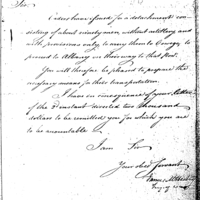 Sir
Orders have issued for a detachment con
sisting of about ninety men, without artillery and
with provisions only to carry them to Oswego, to
proceed to Albany on their way to that post.
You will therefore be pleased to prepare the
necessary means for their transportation.
I have in consequence of your letter
of the 2d instant directed two thousand
dollars to be remitted you for which you are
to be accountable
I am Sir
Your obed servant
James McHenry